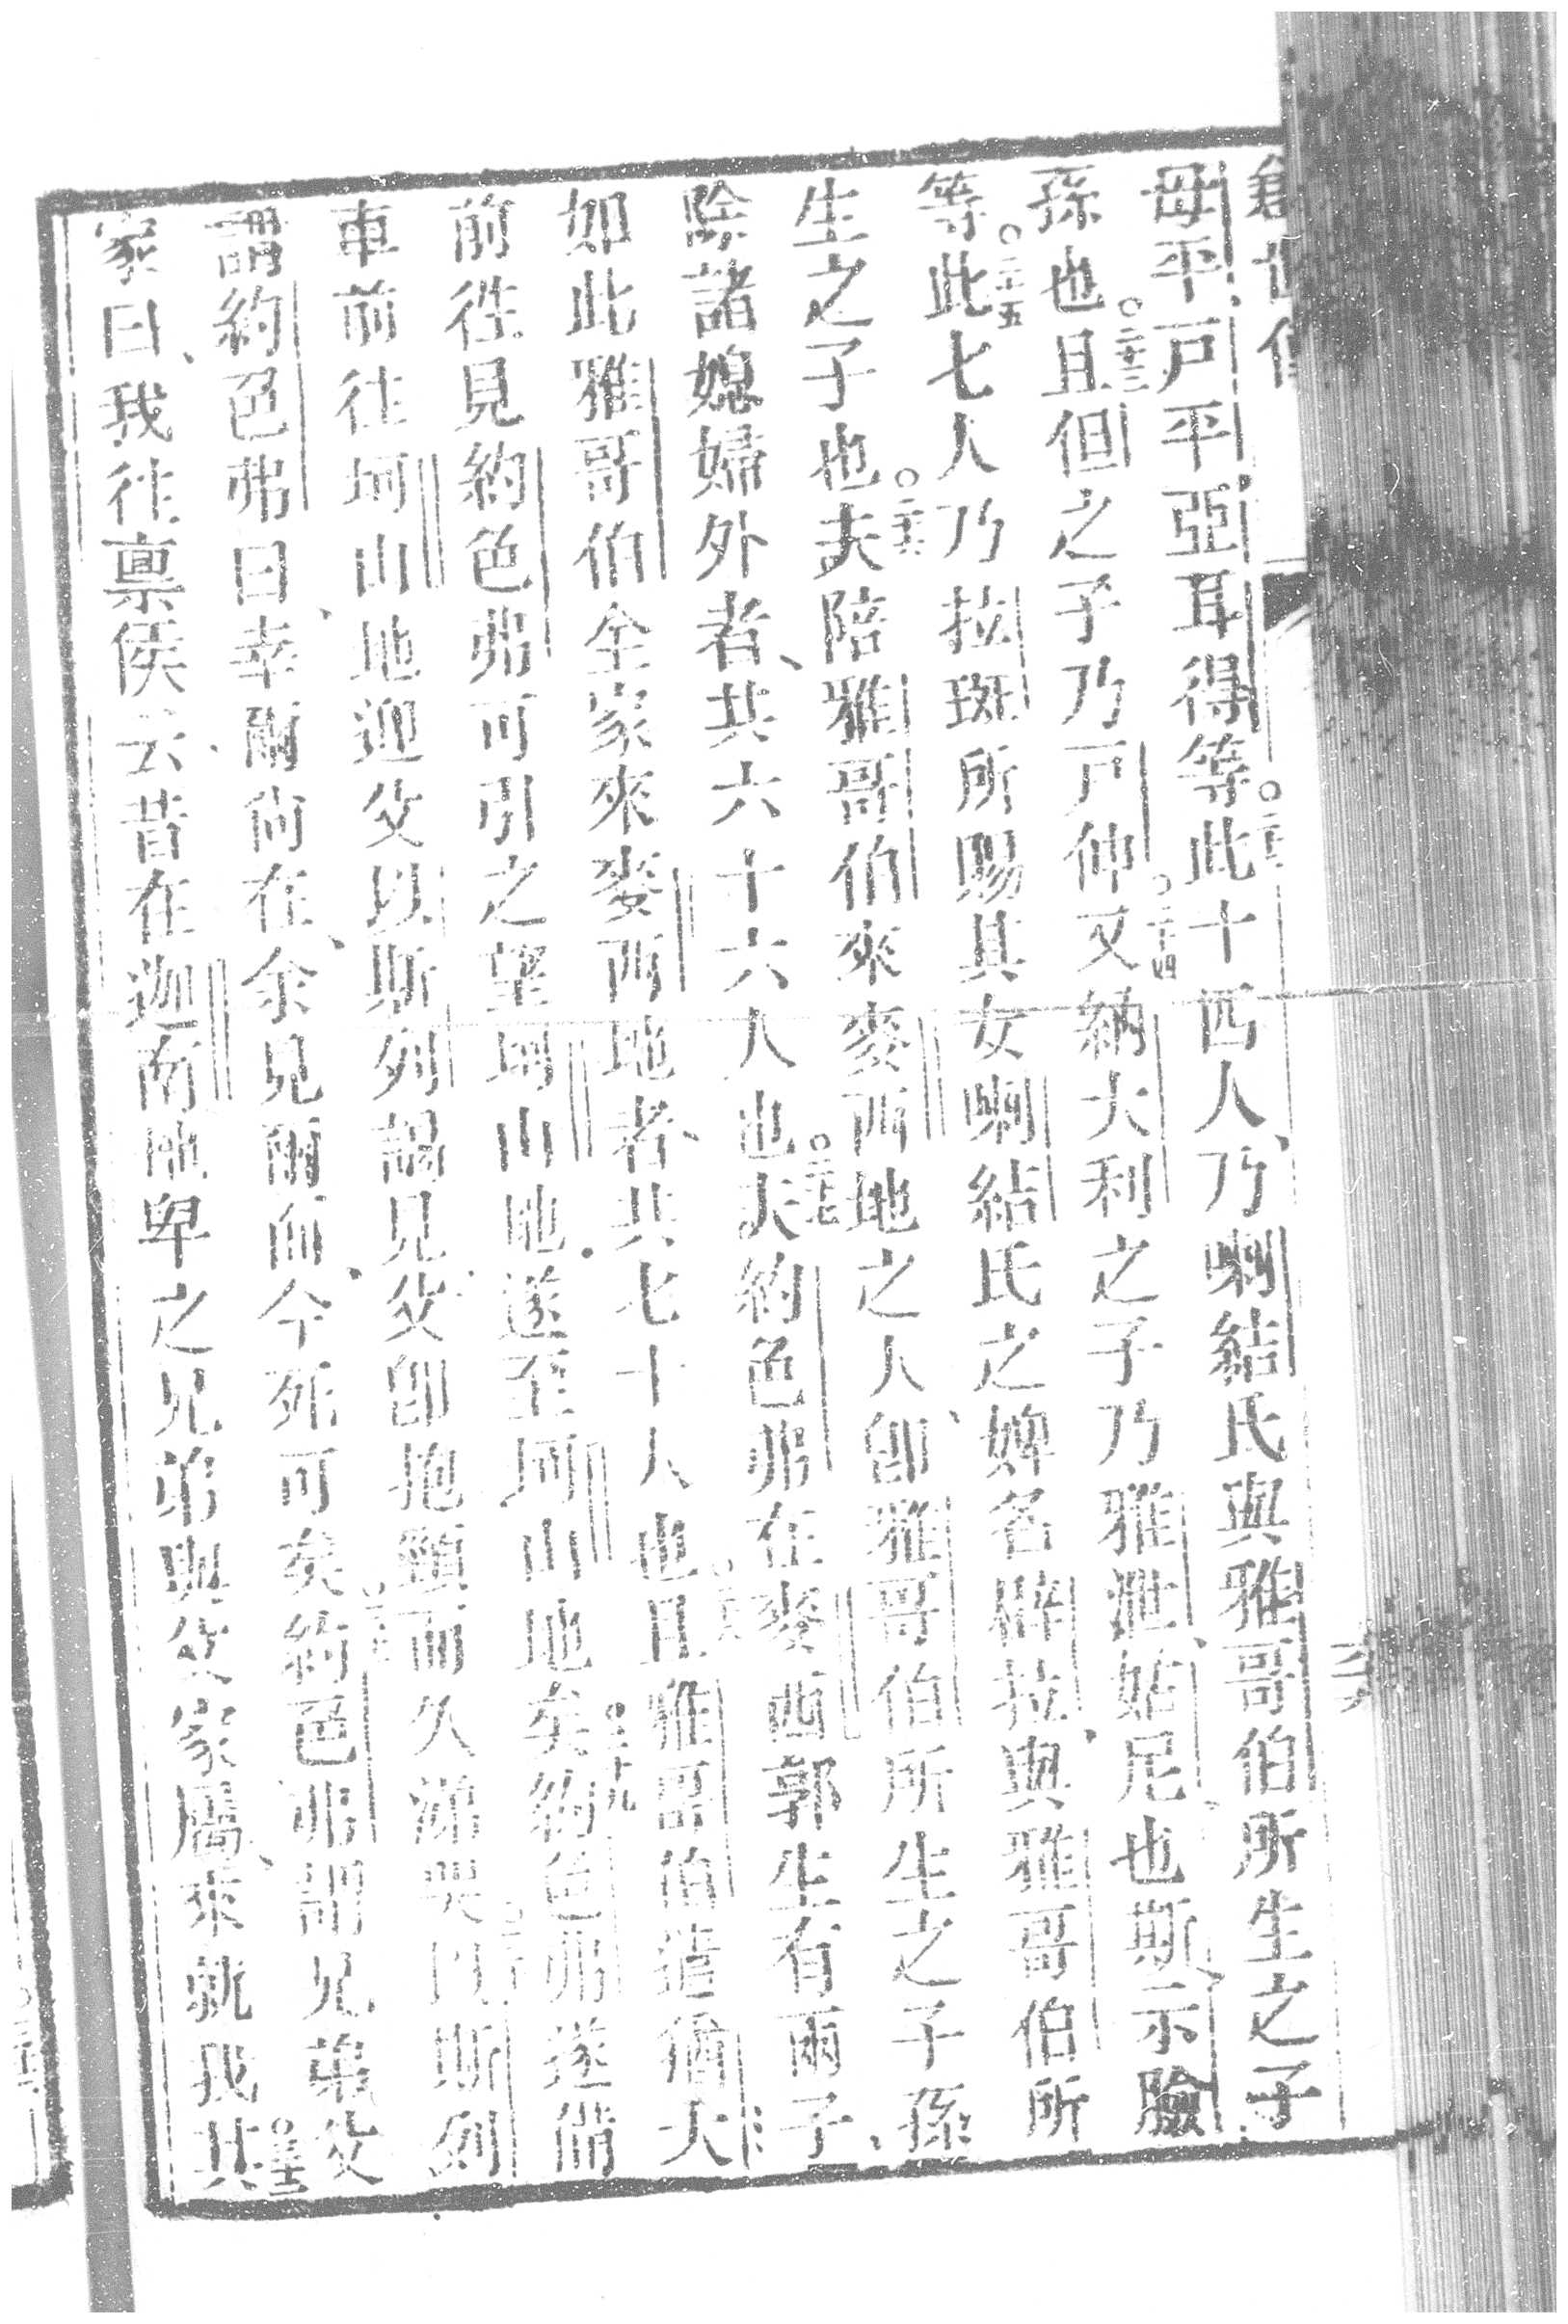 毋平戸平亞耳得等○二十二此十四人、乃喇結氏與雅哥伯所生之子
孫也○二十三且但之子乃戸伸○二十四又納大利之子乃雅泄、姑尼也、斯、示臉
等○二十五此七人乃拉斑所賜其女喇結氏之婢名辟拉、與雅哥伯所
生之子也○二十六夫陪雅哥伯來麥西地之人、卽雅哥伯所生之子孫
除諸媳婦外者、共六十六人也○二十七夫約色弗在麥西郭生有兩子、
如此雅哥伯全家來麥西地者、共七十人也○二十八且雅哥伯遣猶大
前徃見約色弗可引之望坷山地。遂至坷山地矣○二十九約色弗遂備
車前往坷山地迎父以斯列謁見父卽抱頸而久涕哭○三十以斯列
謂約色弗曰、幸爾尙在、余見爾面、今死可矣○三十一約色弗謂兄弟父
家曰、我往稟侯云、昔在迦南地卑之兄弟與父家屬、來就我○三十二其